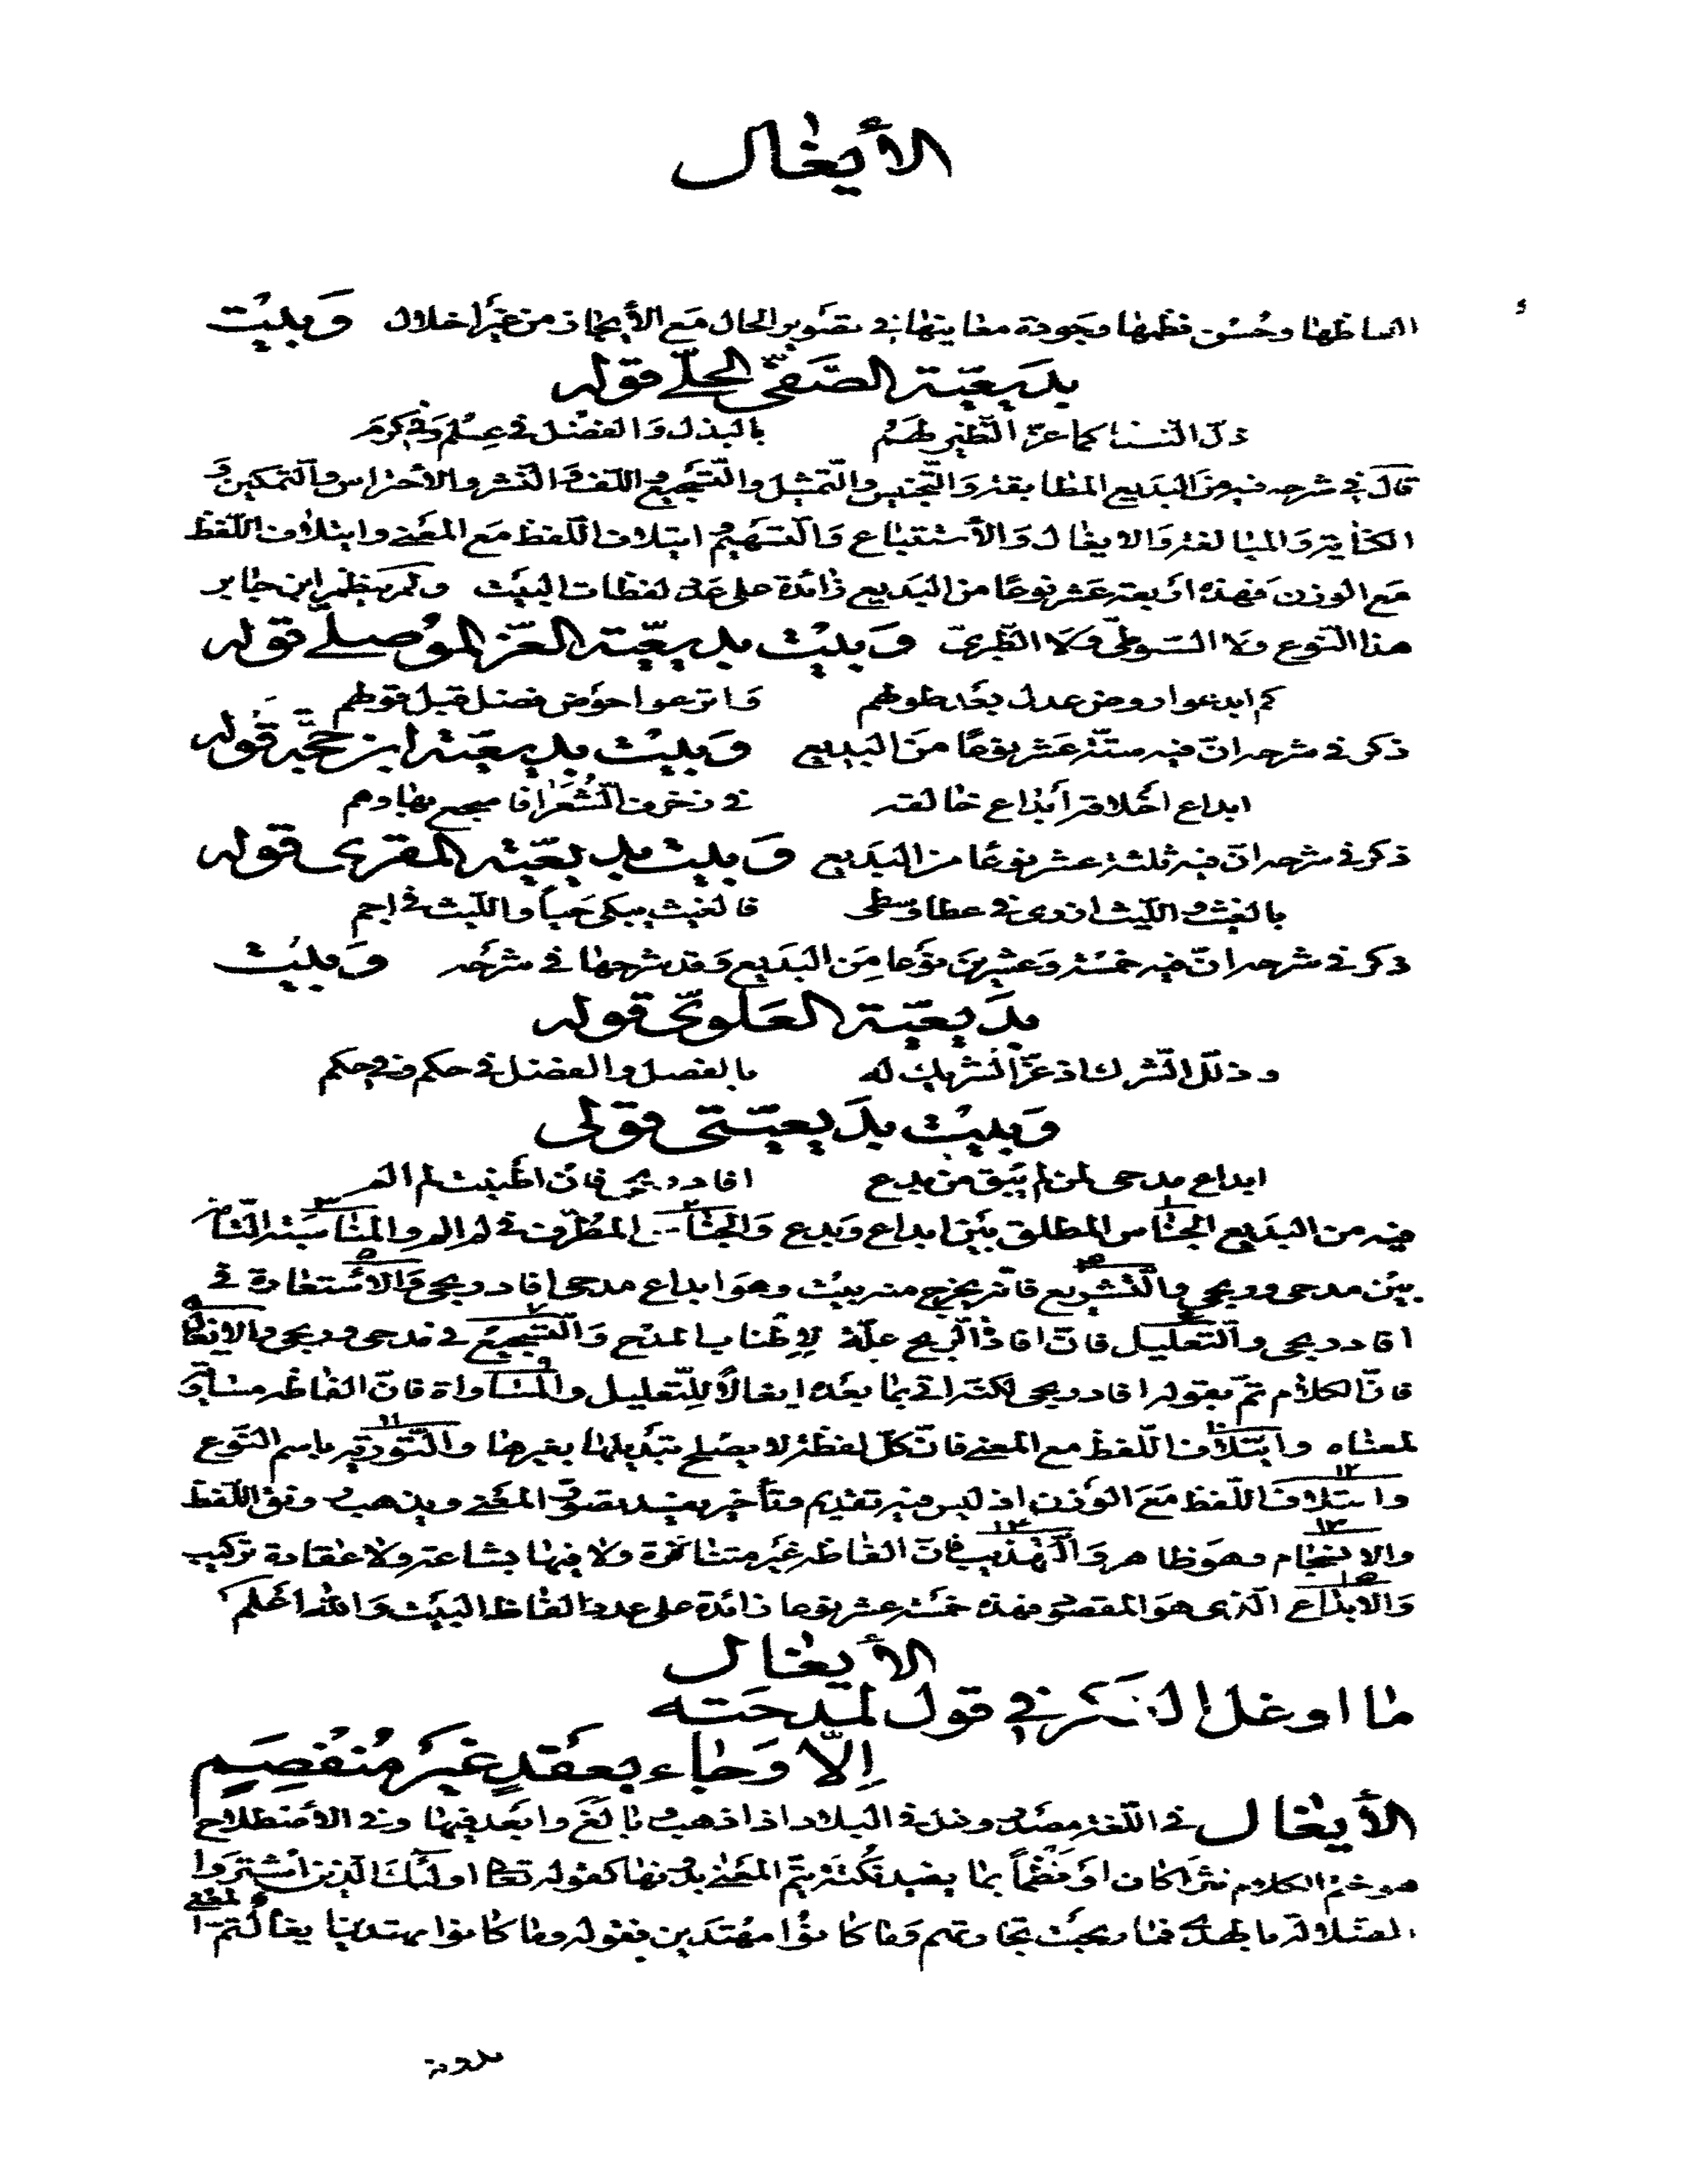 الأيغال
الفاظها وحُسن نظمها وجَودة معانيها في تصَوير الحال مَع الأيجاز من غَير اخلال وَبَيْت
بَديعيّة الصَّفيّ الحلّي قوله
ذلّ النضار كما عزّ النّظير لهم بالبذل وَالفضل في عِلم وَفي كرم
قال في شرحه فيه من البَديع المطابقة وَالتّجنيس والتّمثيل والتّسجيع واللف وَالنّشر والأحتراس والتّمكين وَ
الكنايَة وَالمبالغة وَالايغال وَالأستتباع وَالتسَهيم ايتلاف اللفظ مَع المعَنى وايتلاف اللّفظ
مَع الوزن فهذه أربعة عَشر نوعًا من البَديع زائدة على عَدد لفظات البيت ولم ينظم ابن جابر
هذا النّوع ولا السّيوطيّ وَلا الطّبريّ وَبَيْت بديعيّة العزّ الموصلي قوله
كم ابدعوا روض عدل بعَد طولهم وَاترعوا حوض فضل قبل قولهم
ذكر في شرحه انّ فيه ستّة عَشر نوعًا منَ البَديع وَبَيْت بديعيّة ابن حجّة قوله
ابداع اخلاقه أبداع خالقه في زخرف الشّعَرا فاسجع بها وهم
ذكر في شرحه انّ فيه ثلثة عشر نوعًا من البَديع وَبيت بديعيّة المقري قوله
بالغيث والليث ازرى في عطا وسطى فالغيث يبكي حَياً والليث في اجم
ذكر في شرحه انّ فيه خمسَة وَعشرينَ نوَعا مِن البَديع وَقد شرحها في شرحَه وَبَيْت
بدَيعيّة العَلويّ قوله
وذلّل الشّرك اذ عزّ الشّريك له بالفصل والفضل في حكم وفي حكم
وَبيْت بدَيعيّتي قولي
ابداع مدحى لمن لم يبق من بدع افاد ربحى فان اطنبت لم الم
فيه من البَديع الجناس المطلق بَيْن ابداع وَبدع وَالجناس المُطرّف في لم الم والمناسَبة التّامّة
بيْن مدحى وربحى والتّشريع فانّه يخرج منه بيت وهوَ ابداع مدحى افاد ربحى وَالاستعارة في
افاد ربحى والتّعليل فانّ افاد الربح علّة لإطناب المدَح وَالتّسجيع في مدحى وربحى والايغال
فانّ الكلام تمّ بقوله افاد ربحى لكنّه اتى بما بعَده ايغالاً للتّعليل والمسَاواة فانّ الفاظه مساويَة
لمعناه وايتلاف اللّفظ مع المعنى فانّ كلّ لفظة لا يصلح تبديلها بغيرها والتّورية باسم النّوع
وايتلاف اللّفظ مَعَ الوَزن اذ ليس فيه تقديم وتأخير يفسد تصوّر المعَنى ويذهب رونق اللّفظ
والانسجام وهوَ ظاهر وَالتّهذيب فانّ الفاظه غَير متنافرة ولا فيها بشاعة ولا عقادة تركيب
وَالابداع الّذى هوَ المقصود فهذه خمسَة عشر نوعا زائدة على عدد الفاظ البَيت وَاللّه اعَلم
الأيغال
ما اوغل الفكر في قول لمدحته
إلّا وَجاء بعَقدٍ غيَر مُنفصِمِ
الأيغال في اللّغة مصدر وغل في البلاد اذا ذهب بالَغ وابعَد فيها وفي الأصطلاح
هو ختم الكلام نثراً كان أو نظماً بما يفيد نكتة يتمّ المعَنى بدونها كقوله تعا اولئك الّذين اشتروا
الضّلالة بالهدى فما ربحت تجارتهم وَما كانوا مهتدَين فقوله وما كانوا مهتدين ايغال لتمام المعنى
بدونه